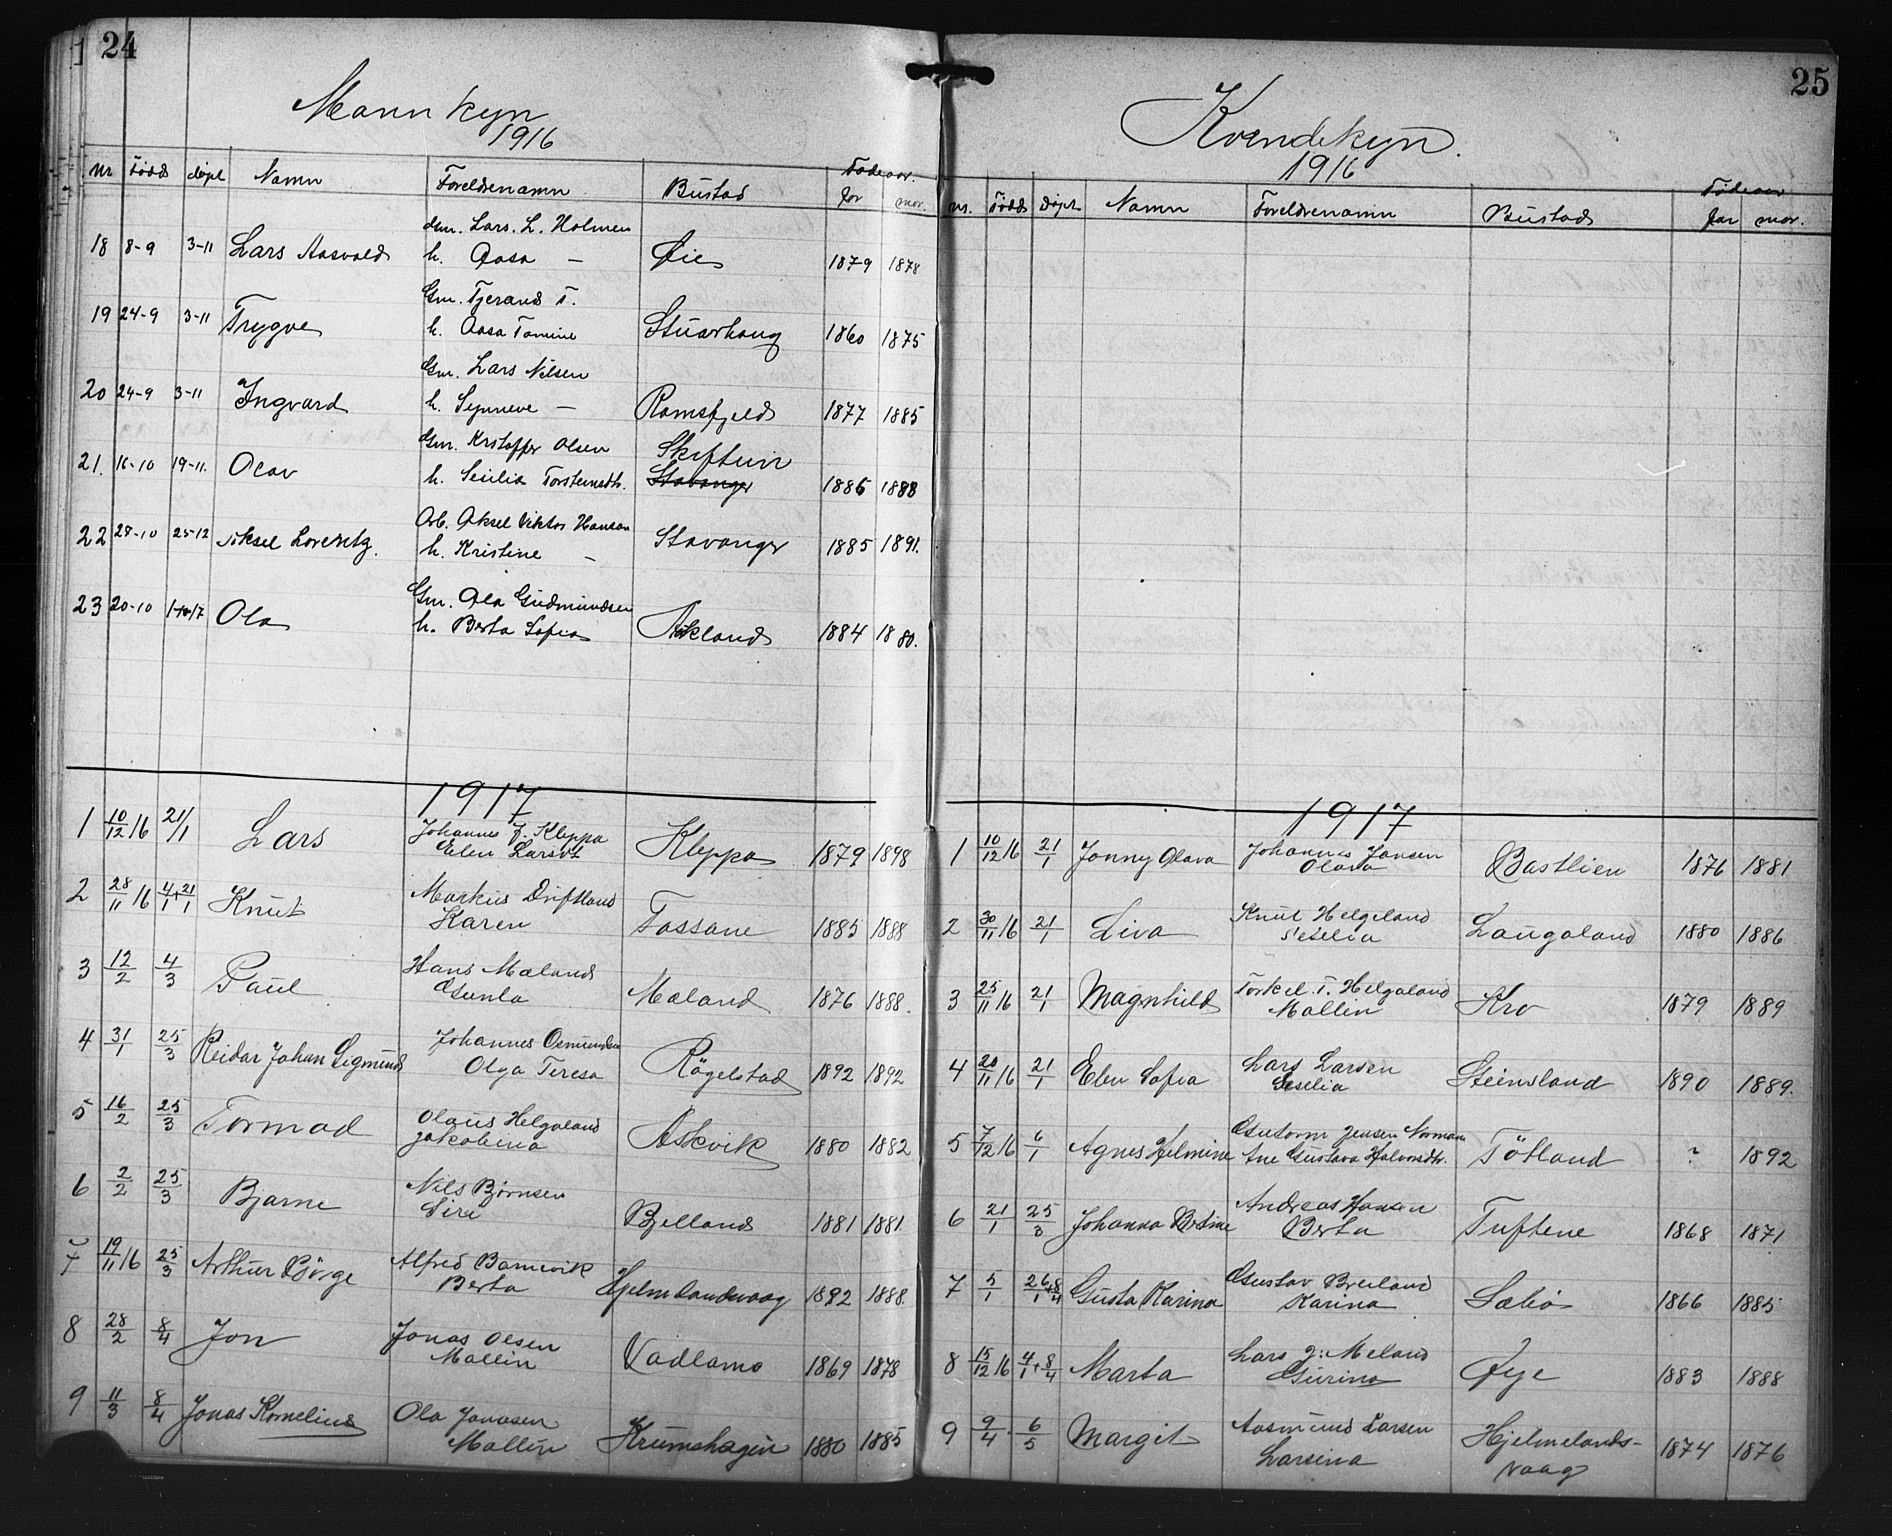 24
Mannkyn
1916
Nr Född döpt Namn Foreldrenamn Bustad Födeaar. far mor.
18 8-9 3-11 Lars Aasvald Gm. Lars. L. Holmen
h. Aasa — Öie 1879 1878
19 24-9 3-11 Trygve Gm. Tjerand T.
h. Aasa Tomine 1860 1875
20 24-9 3-11 Ingvard Gm. Lars Nilsen
h. Synneve — Ramsfjeld 1877 1885
21. 16-10 19-11. Olav Gm. Kristoffer Olsen Skiftun
h. Sesilia Torsteinsdtr. Stavanger 1886 1888
22 28-10 25-12 Aksel Lorentz. Arb. Aksel Viktor Hansen
h. Kristine — Stavanger 1885 1891.
23 20-10 Ola Gm. Ola Gudmundsen
h. Berta Sofia Askland 1884 1880.
1917
1 10/12 16 21/1 Lars Johannes J. Kleppa
Elen Larsdt Kleppa 1879 1898
2 28/11 16 4/1+21/1 Knut Markus Driftland
Karen Tossane 1885 1888
3 12/2 4/3 Paul Hans Mæland
Gunla Mæland 1876 1888.
4 31/1 25/3 Reidar Johan Sigmund Johannes Osmundsen
Olga Teresa Rögelstad 1892 1892
5 16/2 25/3 Tormod Olaus Helgaland
Jakobina Askvik 1880 1882
6 2/2 25/3 Bjarne Nils Björnsen
Siri Bjelland 1881 1881
7 19/11 16 25/3 Arthur Börge Alfred Barnevik
Berta Hjelmlandsvaag 1892 1888.
8 28/2 8/4 Jon Jonas Olsen
Mallin Vadlamo 1869 1878
9 11/3 8/4 Jonas Kornelius Ola Jonasen
Mallin Krumshagen 1880 1885
25
Kvendekyn.
1916
nr. Född Döpt Namn Foreldrenamn Bustad Födeaar far mor.
1917
1 10/12 16 21/1 Jonny Olava Johannes Jansen
Olava Bastlien 1876 1881
2 30/11 16 21/1 Liva Knut Helgeland
Seselia Laugaland 1880 1886
3 25/11 16 21/1 Magnhild Torkel. T. Helgaland
Mallin Kro 1879 1889
4 20/11 16 21/1 Elen Sofia Lars Larsen
Seselia Steinsland 1890 1889.
5 7/12 16 6/1 Agnes Helmine Guttorm Jensen Norman
Ane Gustava Halvorsdtr. Tötland ? 1892
6 21/1 25/3 Johanna Bertine Andreas Hansen
Berta Tuftene 1868 1871
7 5/1 26/1+8/4 Gusta Karina Gustav Breiland
Karina Sæbö 1866 1885
8 15/12 16 4/1+8/4 Marta Lars J: Meland
Gurina Öye 1883 1888
9 9/4 6/5 Margit Aasmund Larsen
Larsina Hjelmelands-
vaag 1874 1876